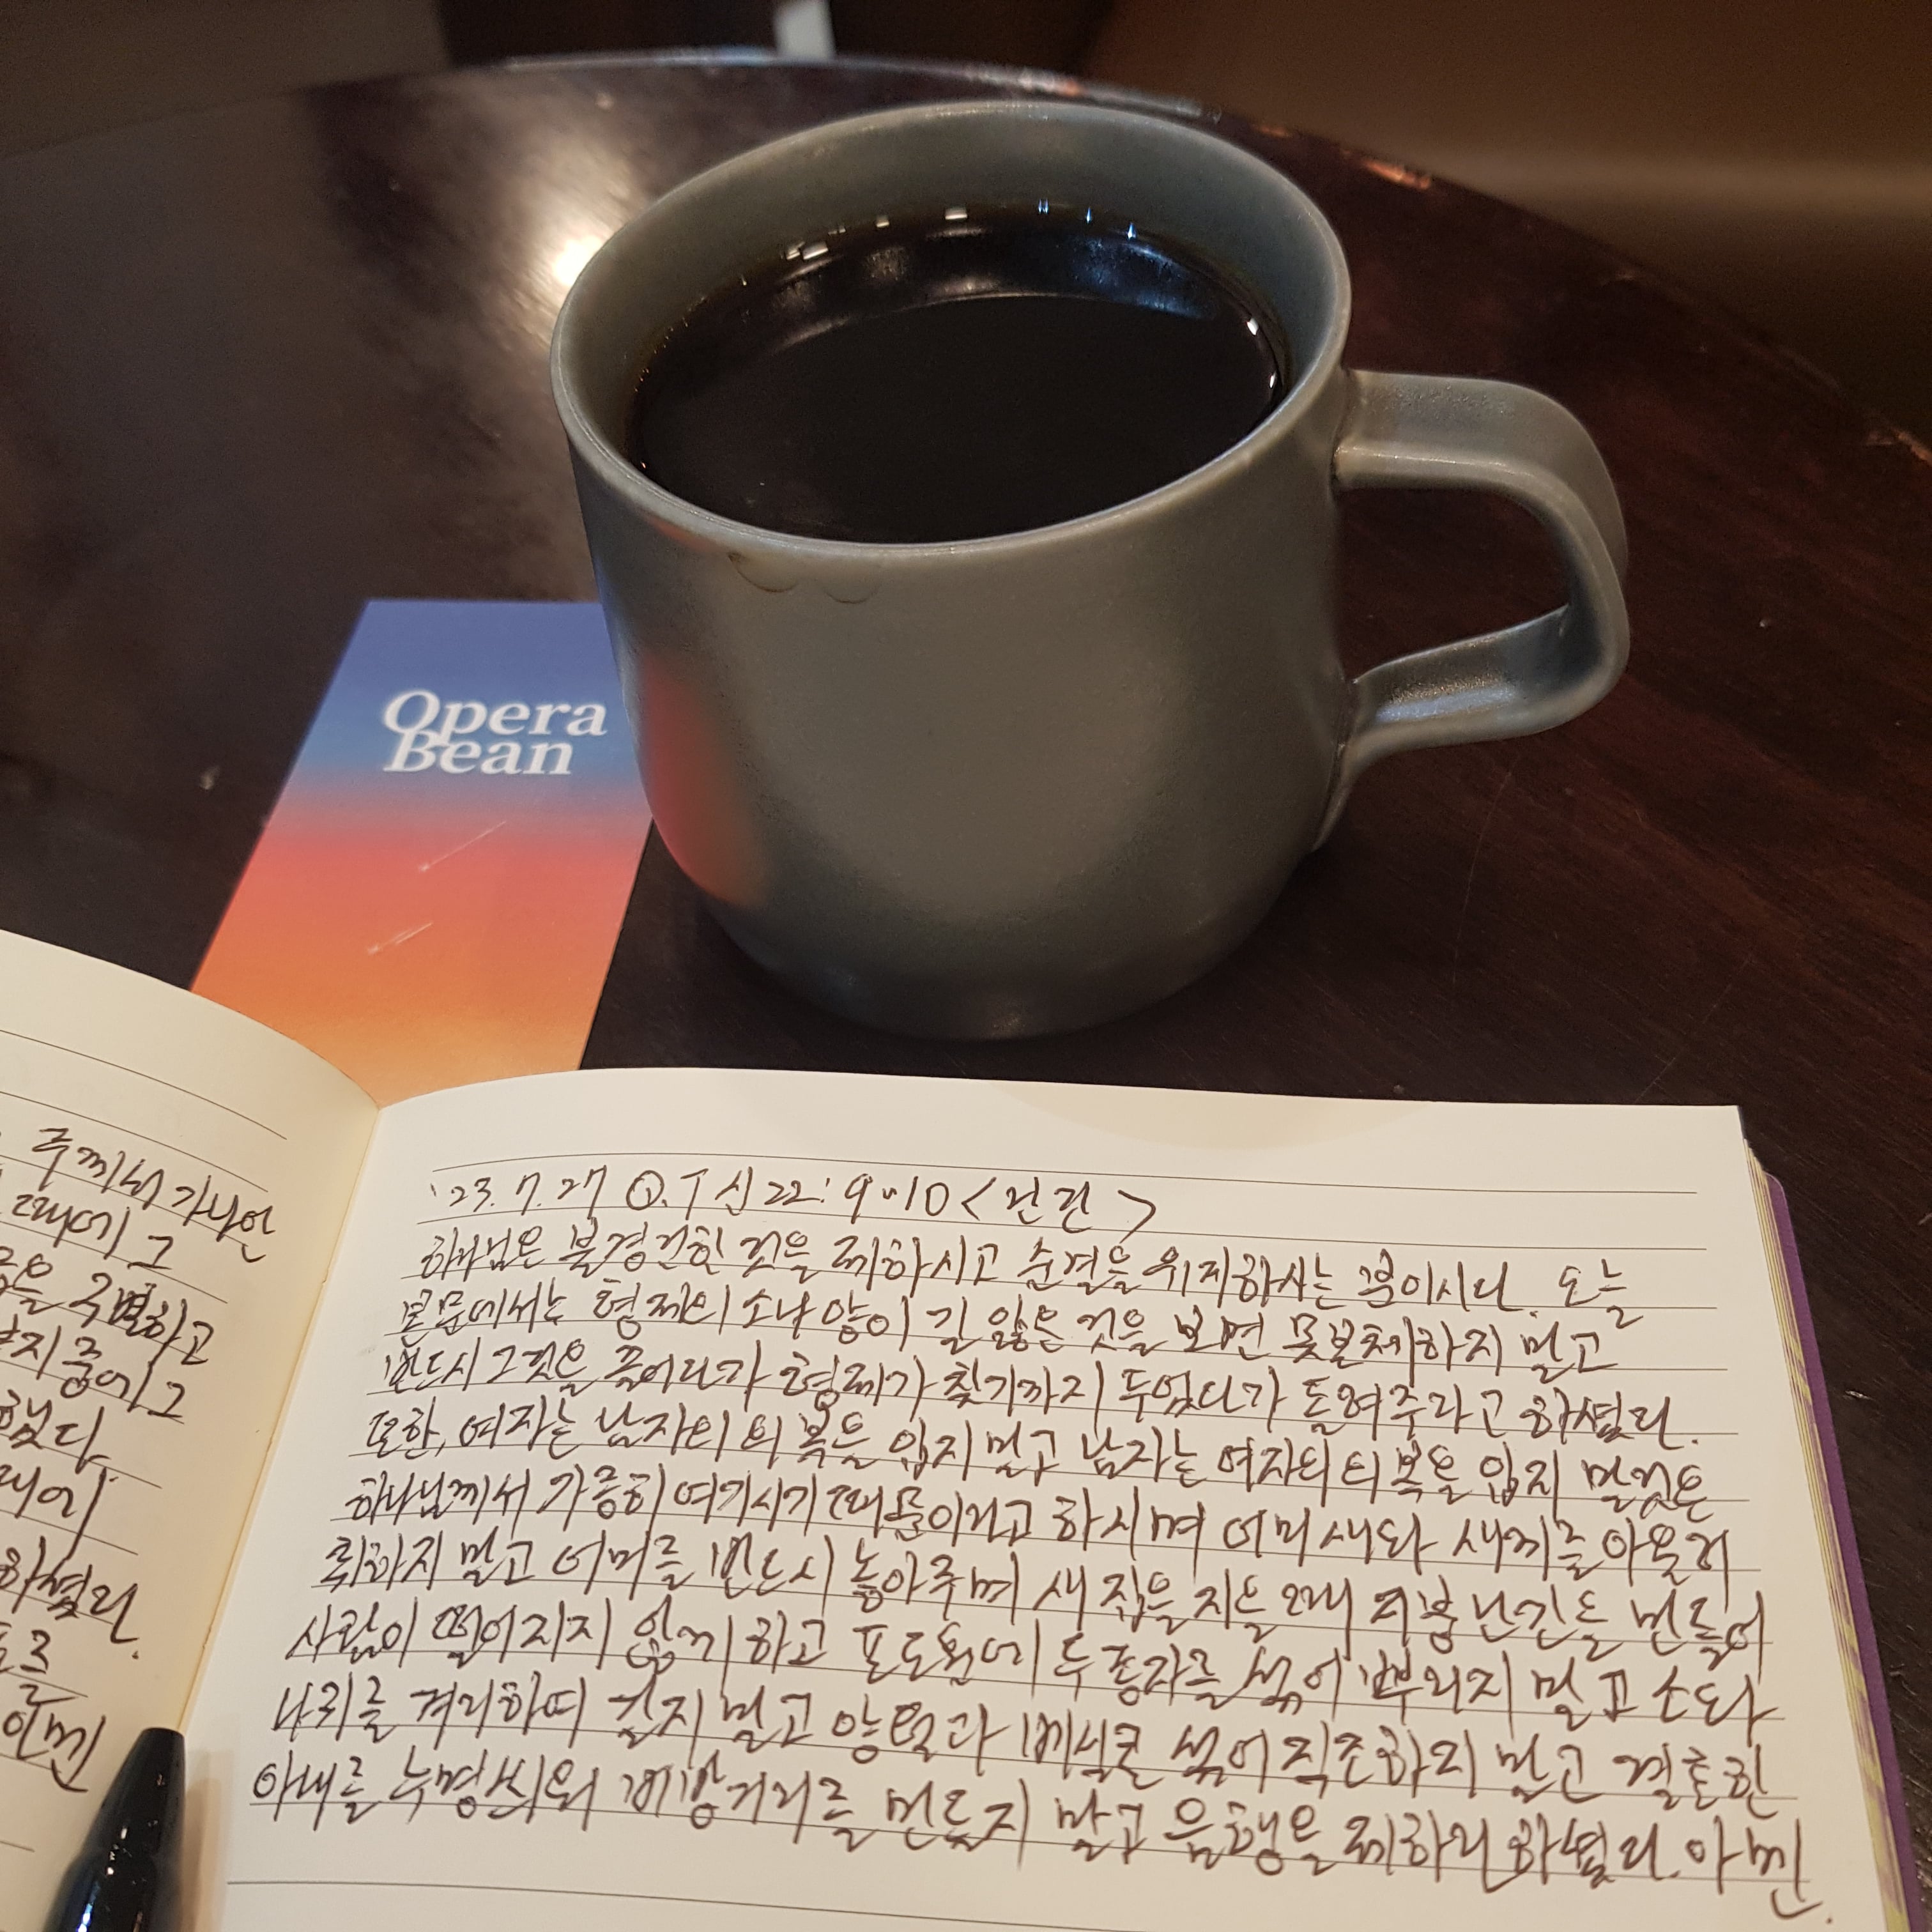 Opera
Bean
주께서 가나안
때에 그
을 구별하고
지 중에 그
했다.
내어
하셨다.
아멘
'23.7.27 Q.T 신22: <건판>
하나님은 불경건한 것을 제하시고 순결을 위지하시는 분이시다. 오늘
본문에서는 형제의 소나 양이 길 잃은 것을 보면 못본체하지 말고
반드시 그것을 끌어다가 형제가 찾기까지 두었다가 돌려주라고 하셨다.
또한, 여자는 남자의 의복을 입지 말고 남자는 여자의 의복을 입지 말것은
하나님께서 가증히 여기시기 때문이라고 하시며 어미새와 새끼를 아울러
취하지 말고 어미를 반드시 놓아주며 새 집을 지을 때 지붕 난간을 만들어
사람이 떨어지지 않게 하고 포도원에 두 종자를 섞어 뿌리지 말고 소와
나귀를 겨리하여 갈지 말고 양털과 베실로 섞어 직조하지 말고 결혼한
아내를 누명씌워 비방거리를 만들지 말고 음행을 제하라 하셨다. 아멘.